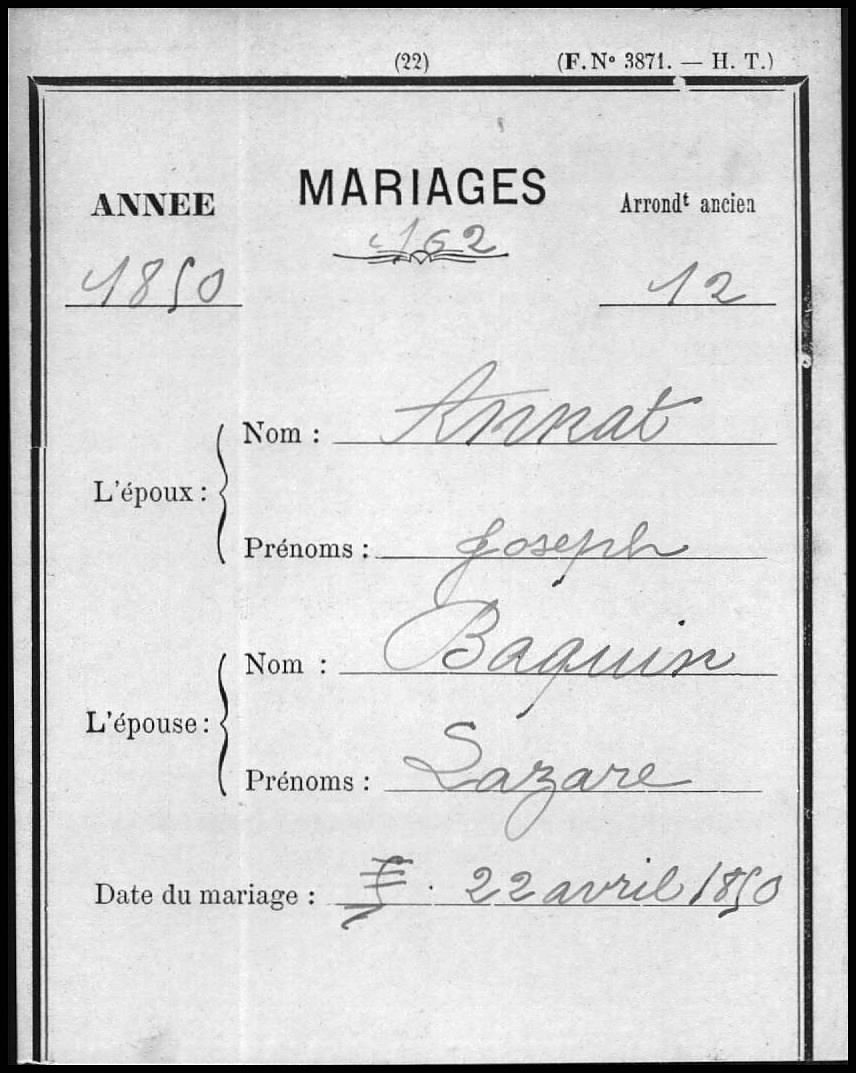 (22) (F. Nº 3871. — H. T.)
ANNEE MARIAGES Arrondᵗ ancien
162
1850 12
L'époux :
Nom : Annat
Prénoms : Joseph
L'épouse :
Nom : Baquin
Prénoms : Lazare
Date du mariage : 22 avril 1850